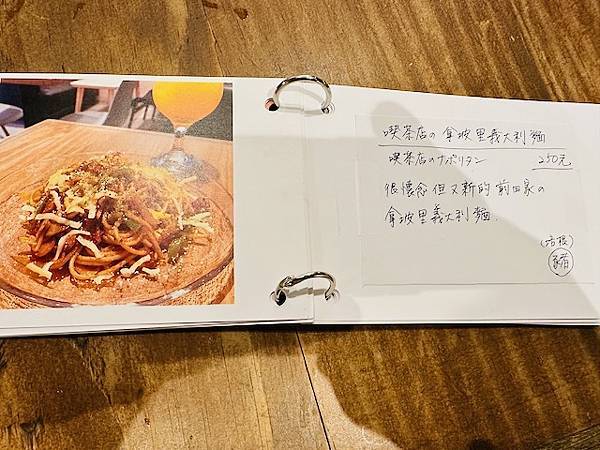 喫茶店の拿坡里義大利麵
喫茶店のナポリタン 250元
很懷念但又新的前田家の
拿坡里義大利麵.
(培根)
豬